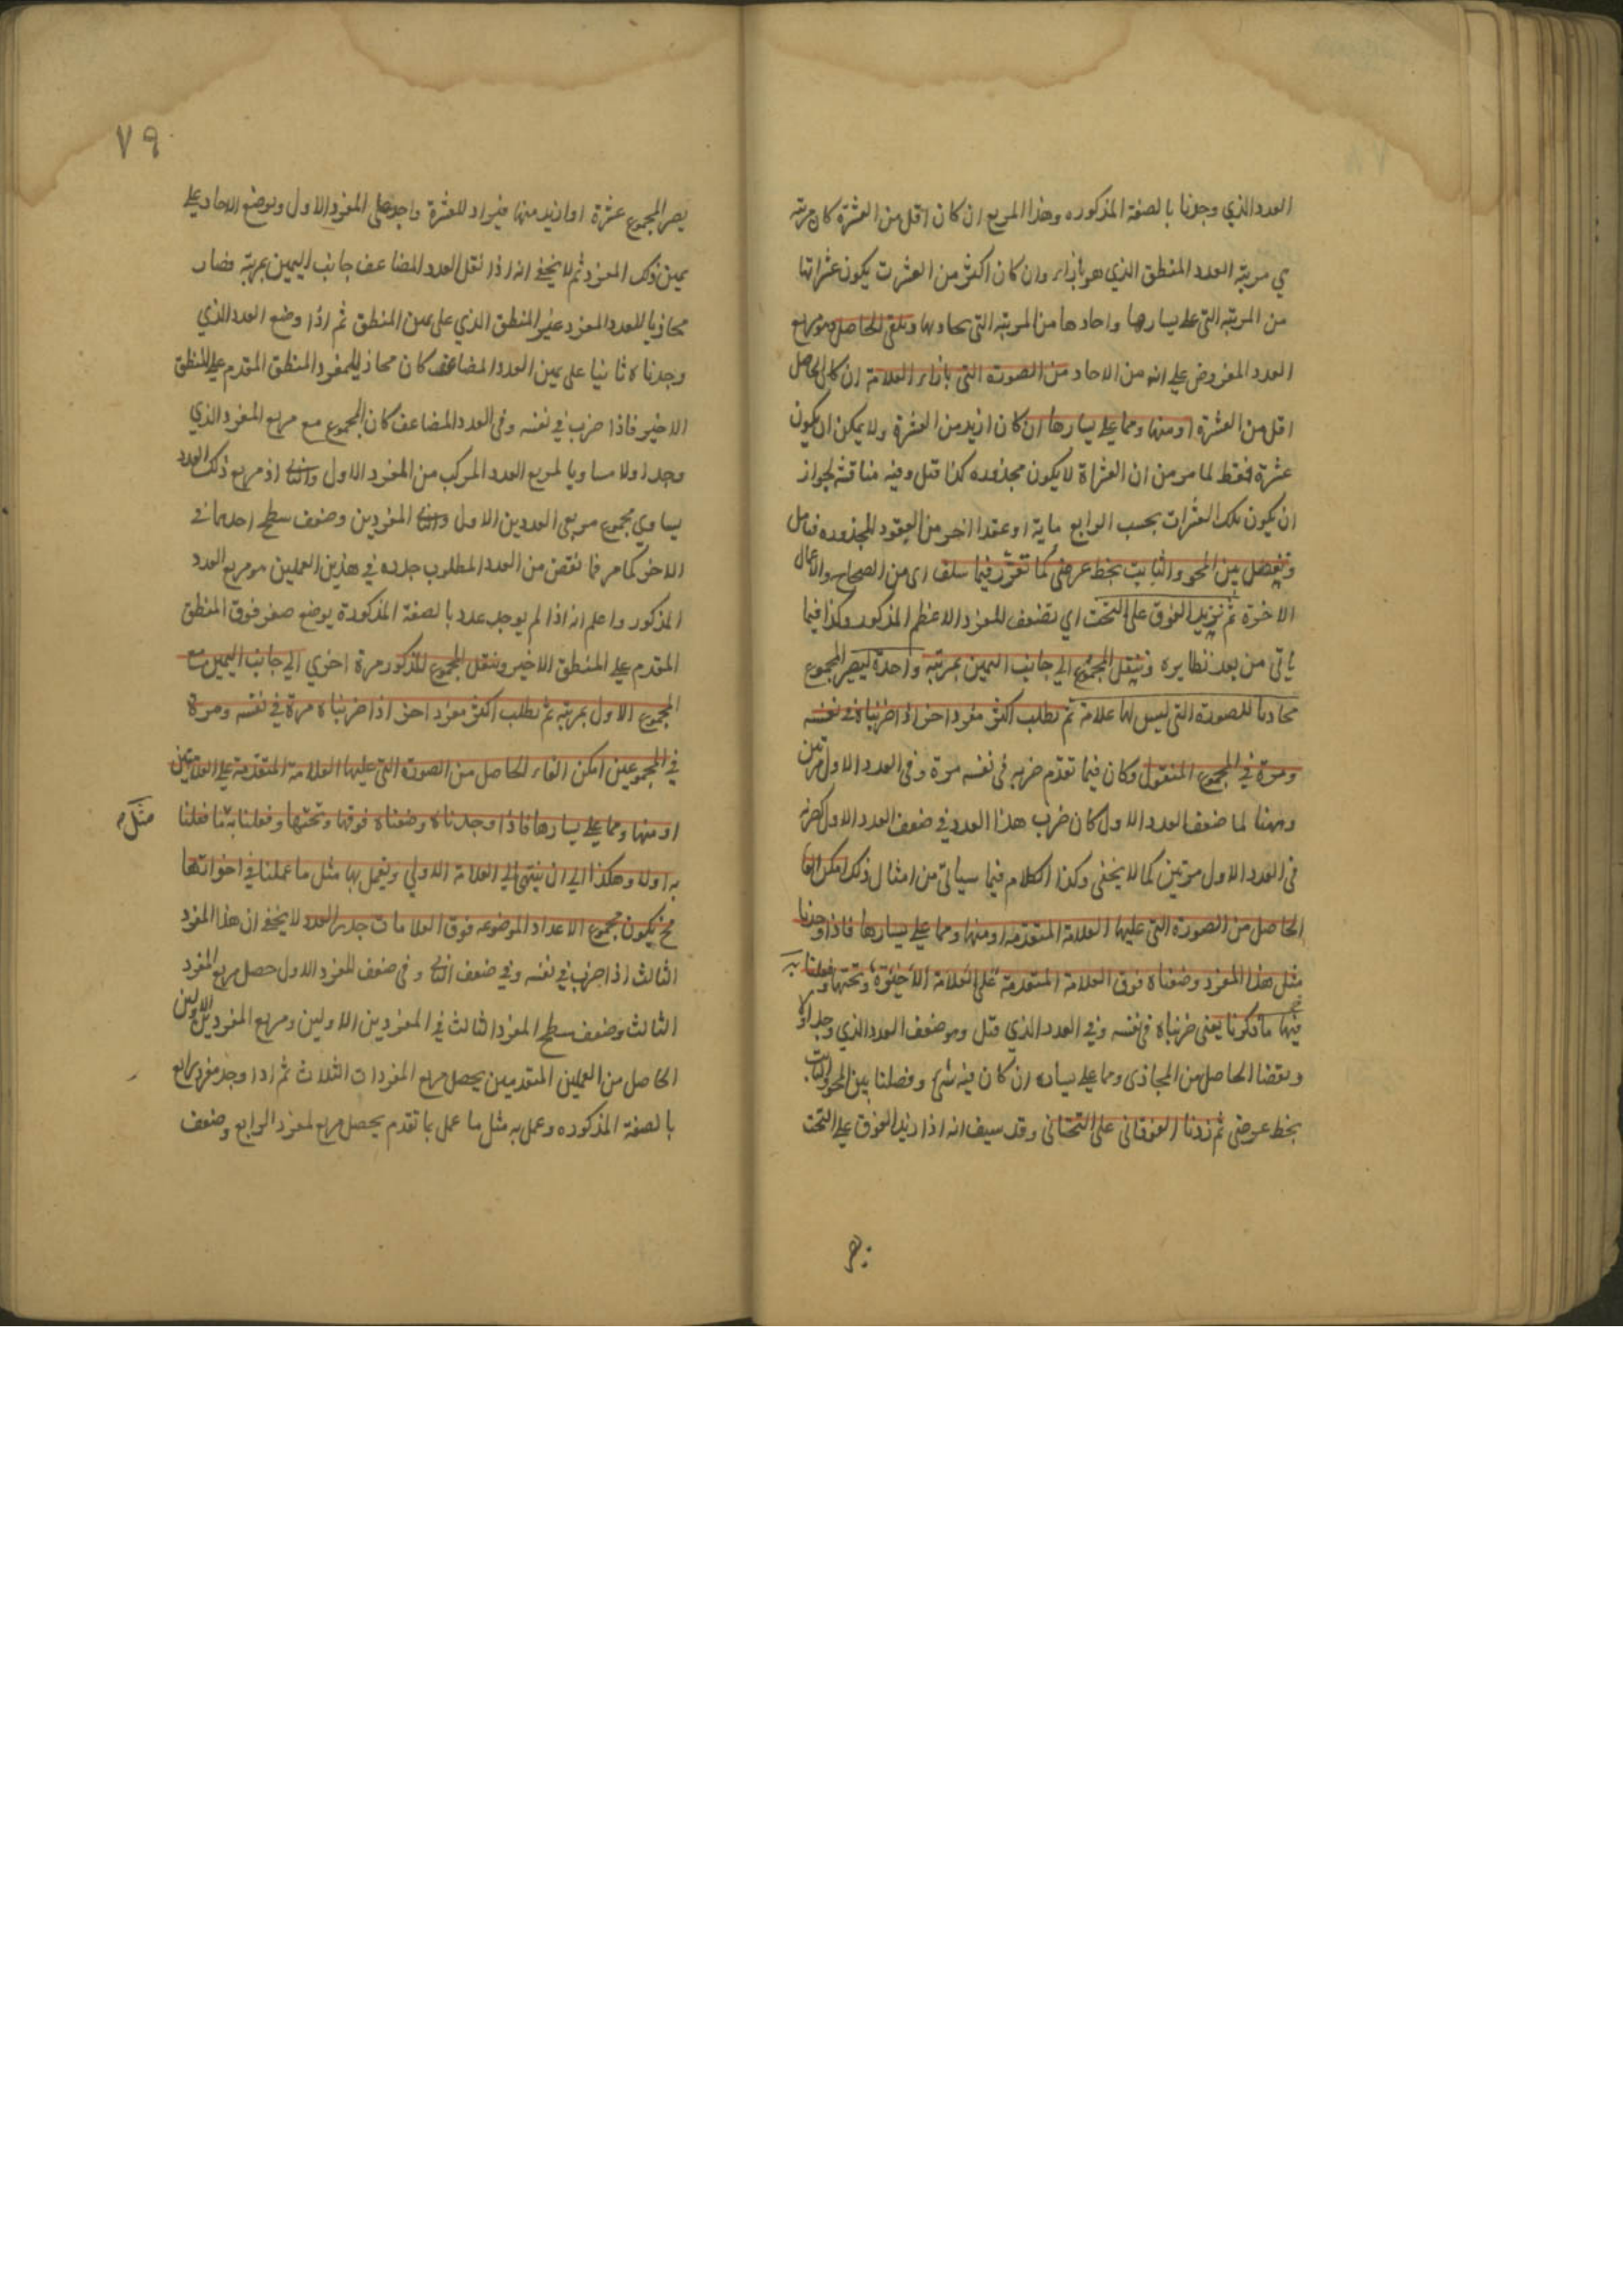 العدد الذي وجدنا بالصفة المذكوره وهذا المربع ان كان اقل من العشرة كان مرتبته
هي مرتبة العدد المنطق الذي هو بازاء وان كان اكثر من العشرت يكون عشراتها
من المرتبة التي على يسارها واحادها من المرتبة التي يحاديها ونلقى الحاصل وهو مربع
العدد المفروض على انه من الاحاد من الصورة التي بازاء العلامة ان كان الحاصل
اقل من العشرة او منها ومما على يسارها ان كان ازيد من العشرة ولا يمكن ان يكون
عشرة فقط لما مر من ان العشراة لا يكون مجذوره كذا قيل وفيه مناقشة لجواز
ان يكون تلك العشرات بحسب الواقع ماية او عقدا اخر من العقود المجذوره فتامل
ونفصل بين الممحو والثابت بخط عرضى كما تقرر فيما سلف اى من الصحاح والاعمال
الاخرة ثم نزيد الفوق على التحت اي نضعف المفرد الاعظم المذكور وكذا فيما
ياتى من بعد نظايره وننقل المجموع الى جانب اليمين بمرتبة واحدة ليصير المجموع
محاديا للصورة التي ليس لها علامة ثم نطلب اكثر مفرد اخر اذا ضربناه في نفسه
ومرة في المجموع المنقول وكان فيما تقدم ضربه في نفسه مرة وفى العدد الاول مرتين
وههنا لما ضعف العدد الاول كان ضرب هذا العدد في ضعف العدد الاول كضربه
في العدد الاول مرتين كما لا يخفى وكذا الكلام فيما سياتى من امثال ذلك امكن القا
الحاصل من الصورة التي عليها العلامة المتقدمة او منها ومما على يسارها فاذا وجدنا
مثل هذا المفرد وضعناه فوق العلامة المتقدمة على العلامة الاخيرة وتحتها وفعلنا به
فيها ما ذكرنا يعنى ضربناه في نفسه وفي العدد الذي قبل وهو ضعف العدد الذي وجد اولا
ونقصنا الحاصل من المحاذى ومما على يساره ان كان فيه شئ وفصلنا بين الممحو والثابت
بخط عرضى ثم زدنا الفوقانى على التحتانى وقد سيف انه اذا زيد الفوق على التحت
٧٩
يصير المجموع عشرة او ازيد منها فيزاد للعشرة واحد على المفرد الاول ويوضع الاحاد على
يمين ذلك المفرد ثم لا يخفى انه اذا نقل العدد المضاعف جانب اليمين بمرتبة فصار
محاذيا للعدد المفرد غير المنطق الذي على يمين المنطق ثم اذا وضع العدد الذي
وجدناه ثانيا على يمين العدد المضاعف كان محاذ للمفرد المنطق المقدم على المنطق
الاخير فاذا ضرب في نفسه وفى العدد المضاعف كان المجموع مع مربع المفرد الذي
وجد اولا مساويا لمربع العدد المركب من المفرد الاول والثانى اذ مربع ذلك العدد
يساوي مجموع مربعى العددين الاول والثانى المفردين وضعف سطح احدهما في
الاخر كما مر فما نقص من العدد المطلوب جذره في هذين العملين هو مربع العدد
المذكور واعلم انه اذا لم يوجد عدد بالصفة المذكورة يوضع صفر فوق المنطق
المقدم على المنطق الاخير وينقل المجموع المذكور مرة اخري الى جانب اليمين مع
المجموع الاول بمرتبة ثم نطلب اكثر مفرد اخر اذا ضربناه مرة في نفسه ومرة
في المجموعين امكن القاء الحاصل من الصورة التي عليها العلامة المتقدمة على العلامتين
او منها ومما على يسارها فاذا وجدناه وضعناه فوقها وتحتها وفعلنا به ما فعلنا
مثله
به اوله وهكذا الى ان ينتهى الى العلامة الاولي ونعمل بها مثل ما عملنا في اخواتها
فح يكون مجموع الاعداد الموضوعه فوق العلامات جذر العدد لا يخفى ان هذا المفرد
الثالث اذا ضرب في نفسه وفي ضعف الثانى وفى ضعف المفرد الاول حصل مربع المفرد
الثالث وضعف سطح المفرد الثالث في المفردين الاولين ومربع المفردين الاولين
الحاصل من العملين المتقدمين يحصل مربع المفردات الثلاث ثم اذا وجد مفرد رابع
بالصفة المذكوره وعمل به مثل ما عمل بما تقدم يحصل مربع لمفرد الرابع وضعف